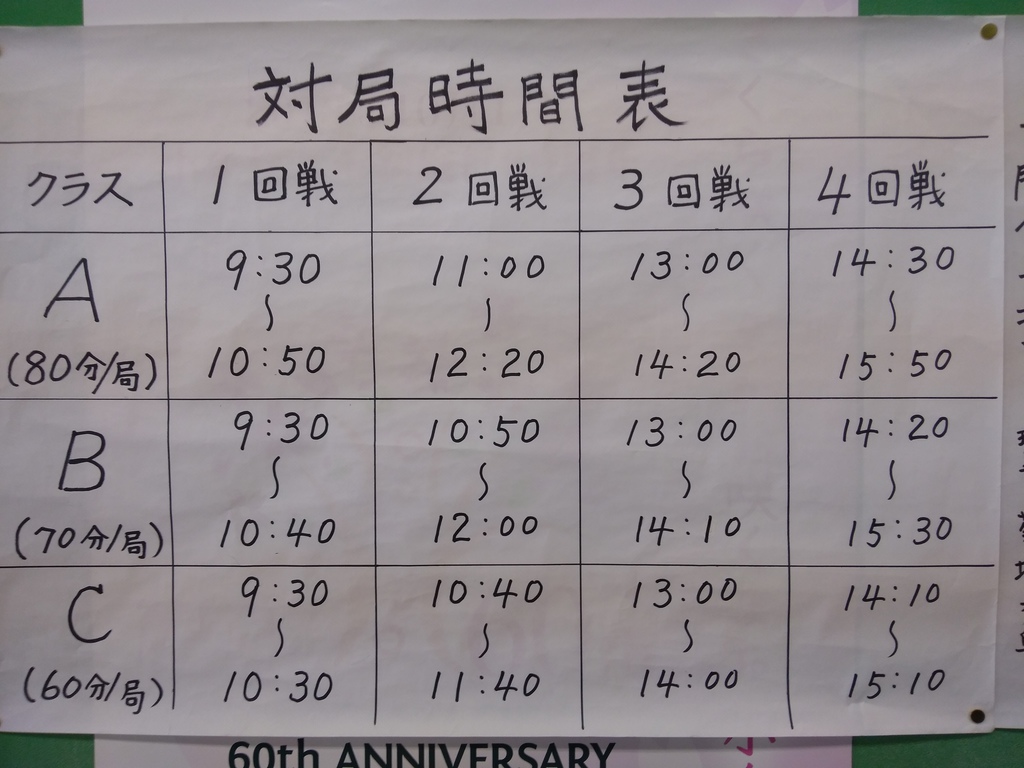 対局時間表
クラス 1回戦 2回戦 3回戦 4回戦
A 9:30 11:00 13:00 14:30
〜 〜 〜 〜
(80分/局) 10:50 12:20 14:20 15:50
B 9:30 10:50 13:00 14:20
〜 〜 〜 〜
(70分/局) 10:40 12:00 14:10 15:30
C 9:30 10:40 13:00 14:10
〜 〜 〜 〜
(60分/局) 10:30 11:40 14:00 15:10
60th ANNIVERSARY